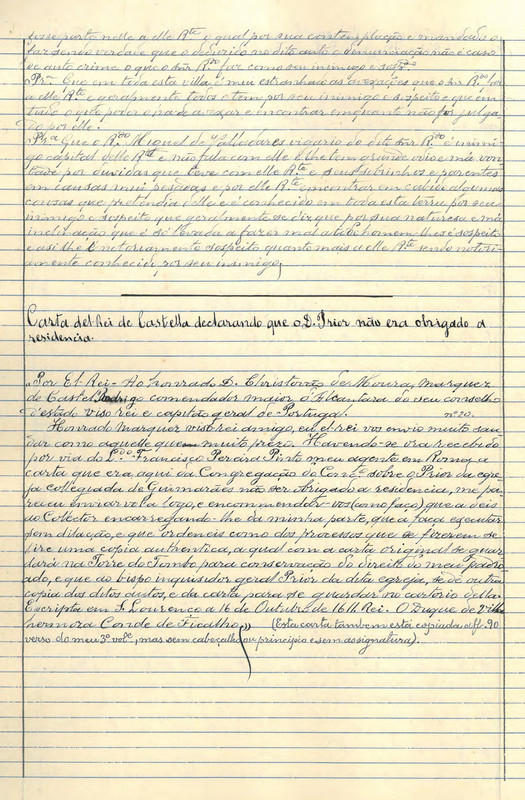 fosse parte nelle a elle Rte o qual por sua contemplação e mandado o
faz sendo verdade que o deduzido no dito auto e denunciação não é caso
de auto crime o que o snr R.do fez como seu inimigo e
Pr.a Que em toda esta villa é mui estranhado as avexações que o snr R.do fez
a elle Rte e geralmente todos o tem por seu inimigo e sospeito e que em
tudo o que poder o ha de avexar e encontrar emquanto não for julga-
do por elle.
Pr.a Que o R.do Miguel de Valladares vigario do dito snr R.do é inimi-
go capital delle Rte e não fala com elle e lhe tem grande odio e má von-
tade por duvidas que teve com elle Rte e seus subrinhos e parentes
em causas mui pesadas e por elle Rte encontrar em cabido algumas
cousas que pretendia e elle é conhecido em toda esta terra por seu
inimigo e sospeito que geralmente se diz que por sua naturesa e má
inclinação que é só livrada a fazer mal a todo homem lhes é sospeito
e asi lhe é notoriamente sospeito quanto mais a elle Rte sendo notori-
amente conhecido por seu inimigo
Carta del Rei de Castella declarando que o D. Prior não era obrigado a
residencia.
"Por El-Rei - Ao honrado D. Christovão de Moura, Marquez
de Castel Rodrigo comendador mayor d'Alcantara do seu conselho
d'estado viso rei e capitão geral de Portugal. nº 20.
Honrado Marquez viso rei amigo, eu el-rei vos envio muito sau-
dar como aquelle que muito prezo. Havendo-se ora recebido
por via do L.do Francisco Pereira Pinto meu agente em Roma, a
carta que era, aqui da Congregação do Conc.º sobre o Prior da egre-
ja collegiada de Guimarães não ser obrigado a residencia, me pa-
receu enviar vol-a logo, e encommendar-vos (como faço) que a deis
ao Colector encarregando-lhe da minha parte, que a faça executar
sem dilação, e que ordeneis como dos processos que se fizerem se
tire uma copia authentica, a qual com a carta original se guar-
dará na Torre do Tombo para conservação do direito do meu padro-
ado, e que ao bispo inquisidor geral Prior da dita egreja, se dê outra
copia dos ditos autos, e da carta para se guardar no cartorio della.
Escripta em S. Lourenço a 16 de Outubro de 1611. Rei. O Duque de Villa
hermoza Conde de Ficalho" (Esta carta tambem está copiada a fl. 90
verso do meu 3º vol.e, mas sem cabeçalho ou principio e sem assignatura).